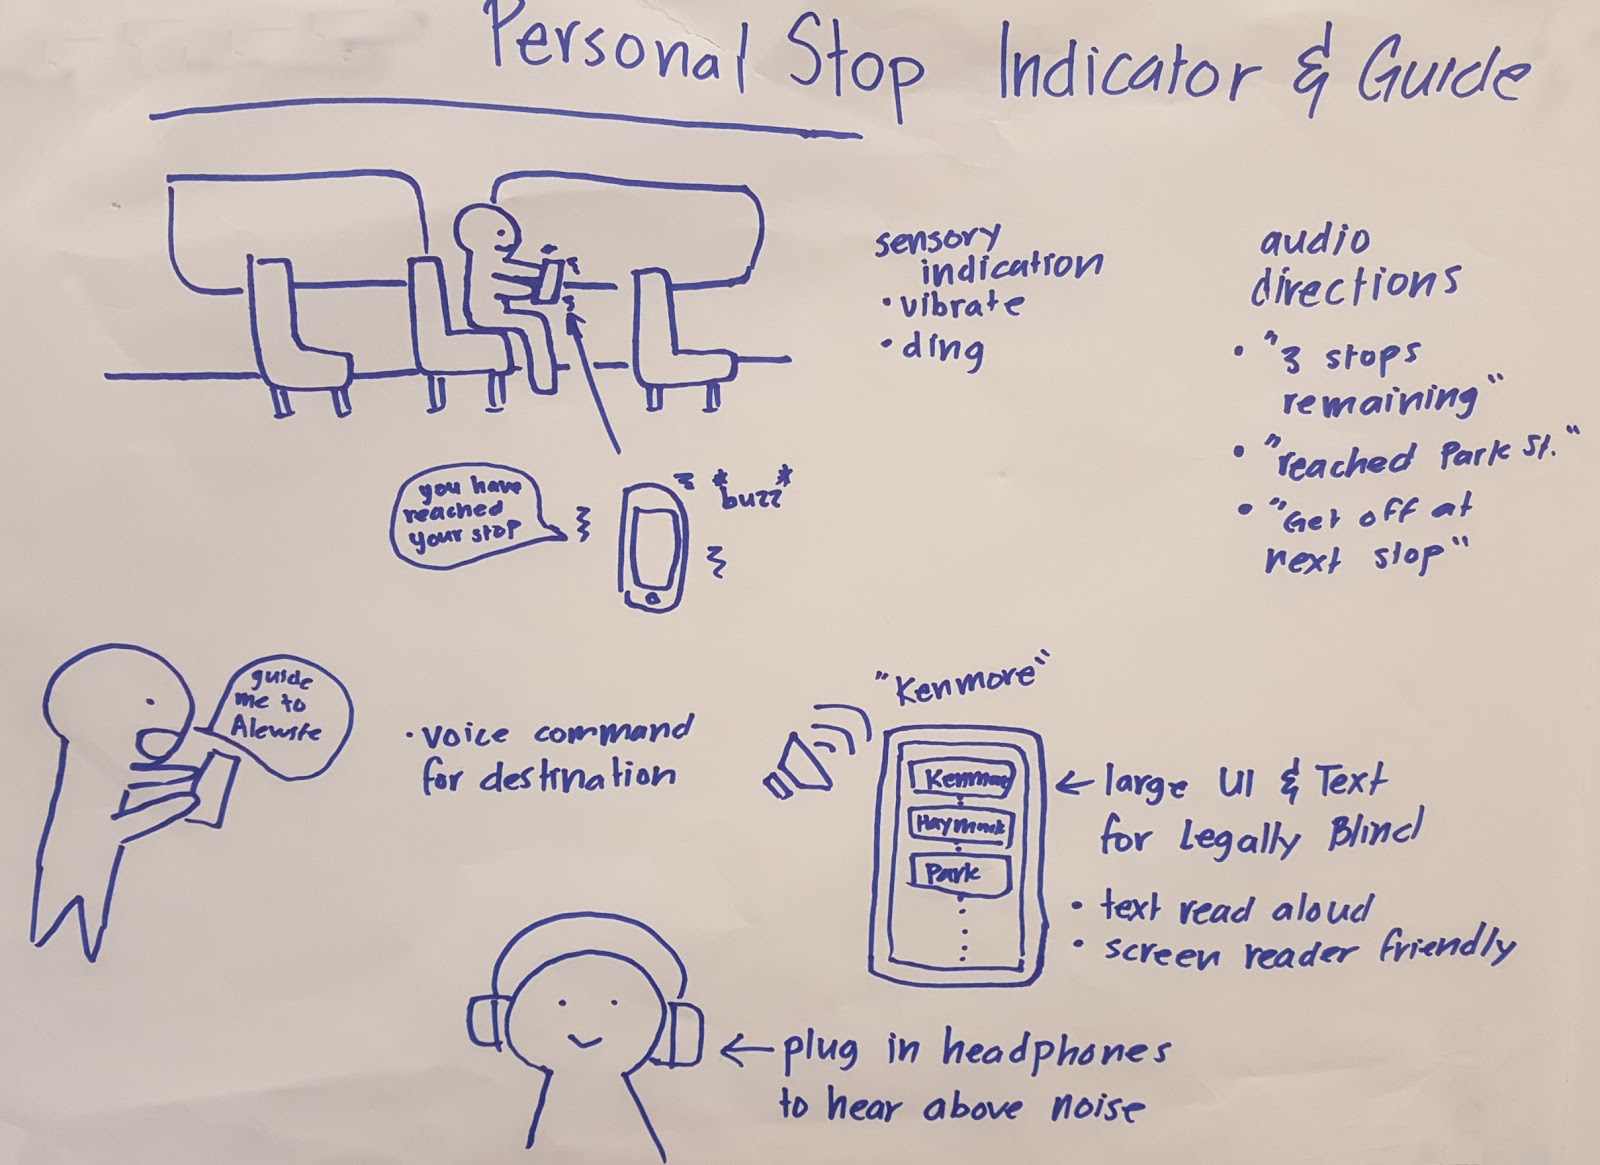 Personal Stop Indicator & Guide
sensory
indication
• vibrate
• ding
audio
directions
• "3 stops
remaining"
• "reached Park St."
• "Get off at
next stop"
you have
reached
your stop
*buzz*
guide
me to
Alewife
• voice command
for destination
"Kenmore"
Kenmore
Haymark
Park
← large UI & Text
for Legally Blind
• text read aloud
• screen reader friendly
← plug in headphones
to hear above noise